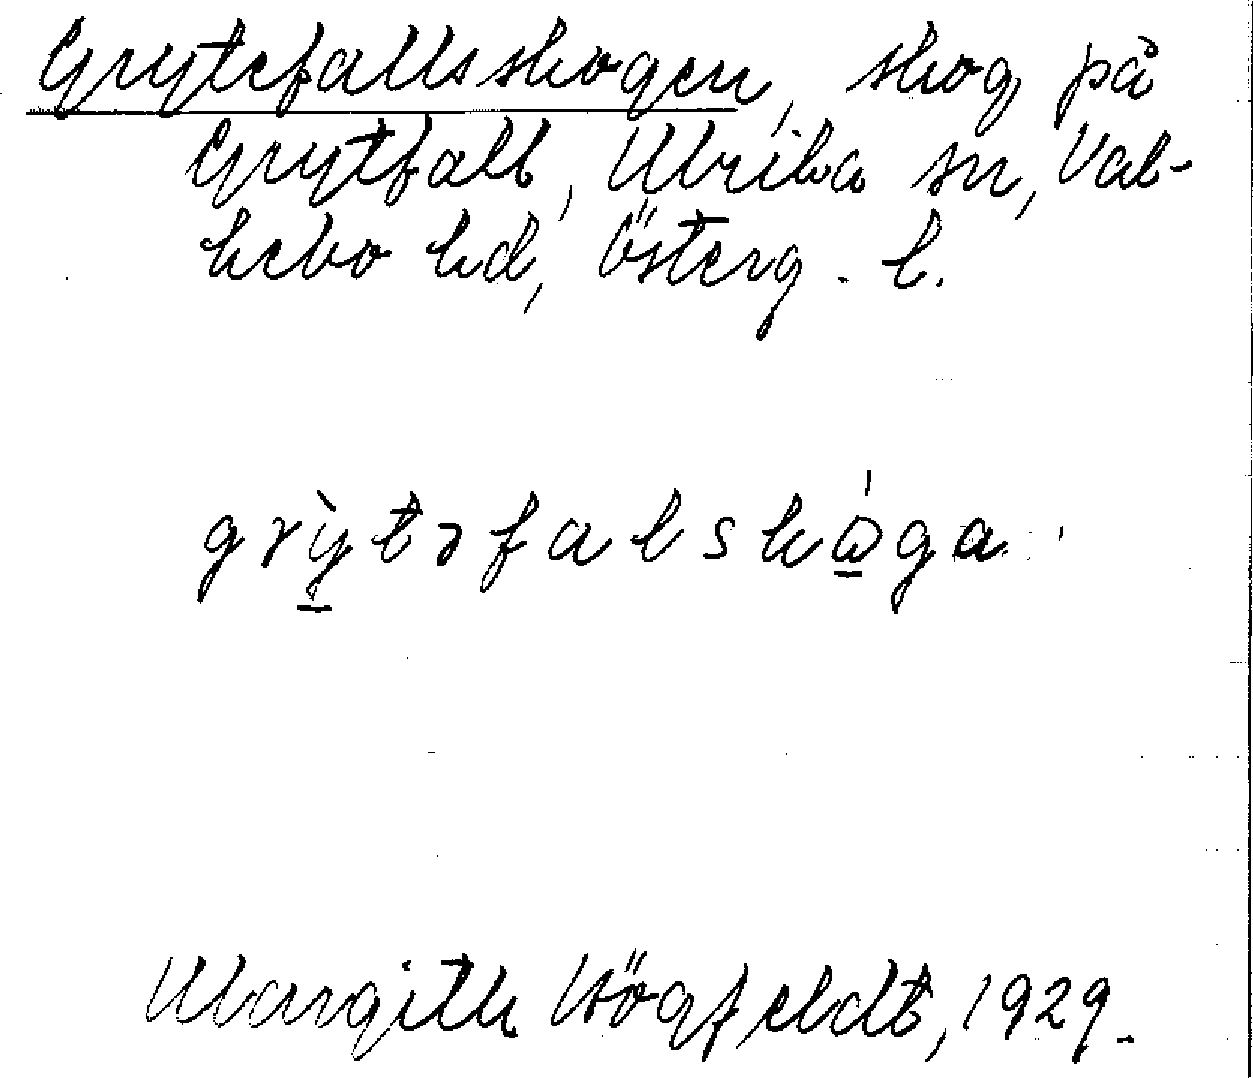 Grytefallsskogen, skog på
Grytfall, Ulrika sn, Val-
kebo hd, Österg. l.
grỳtəfalskóga
Margith Högfeldt, 1929.